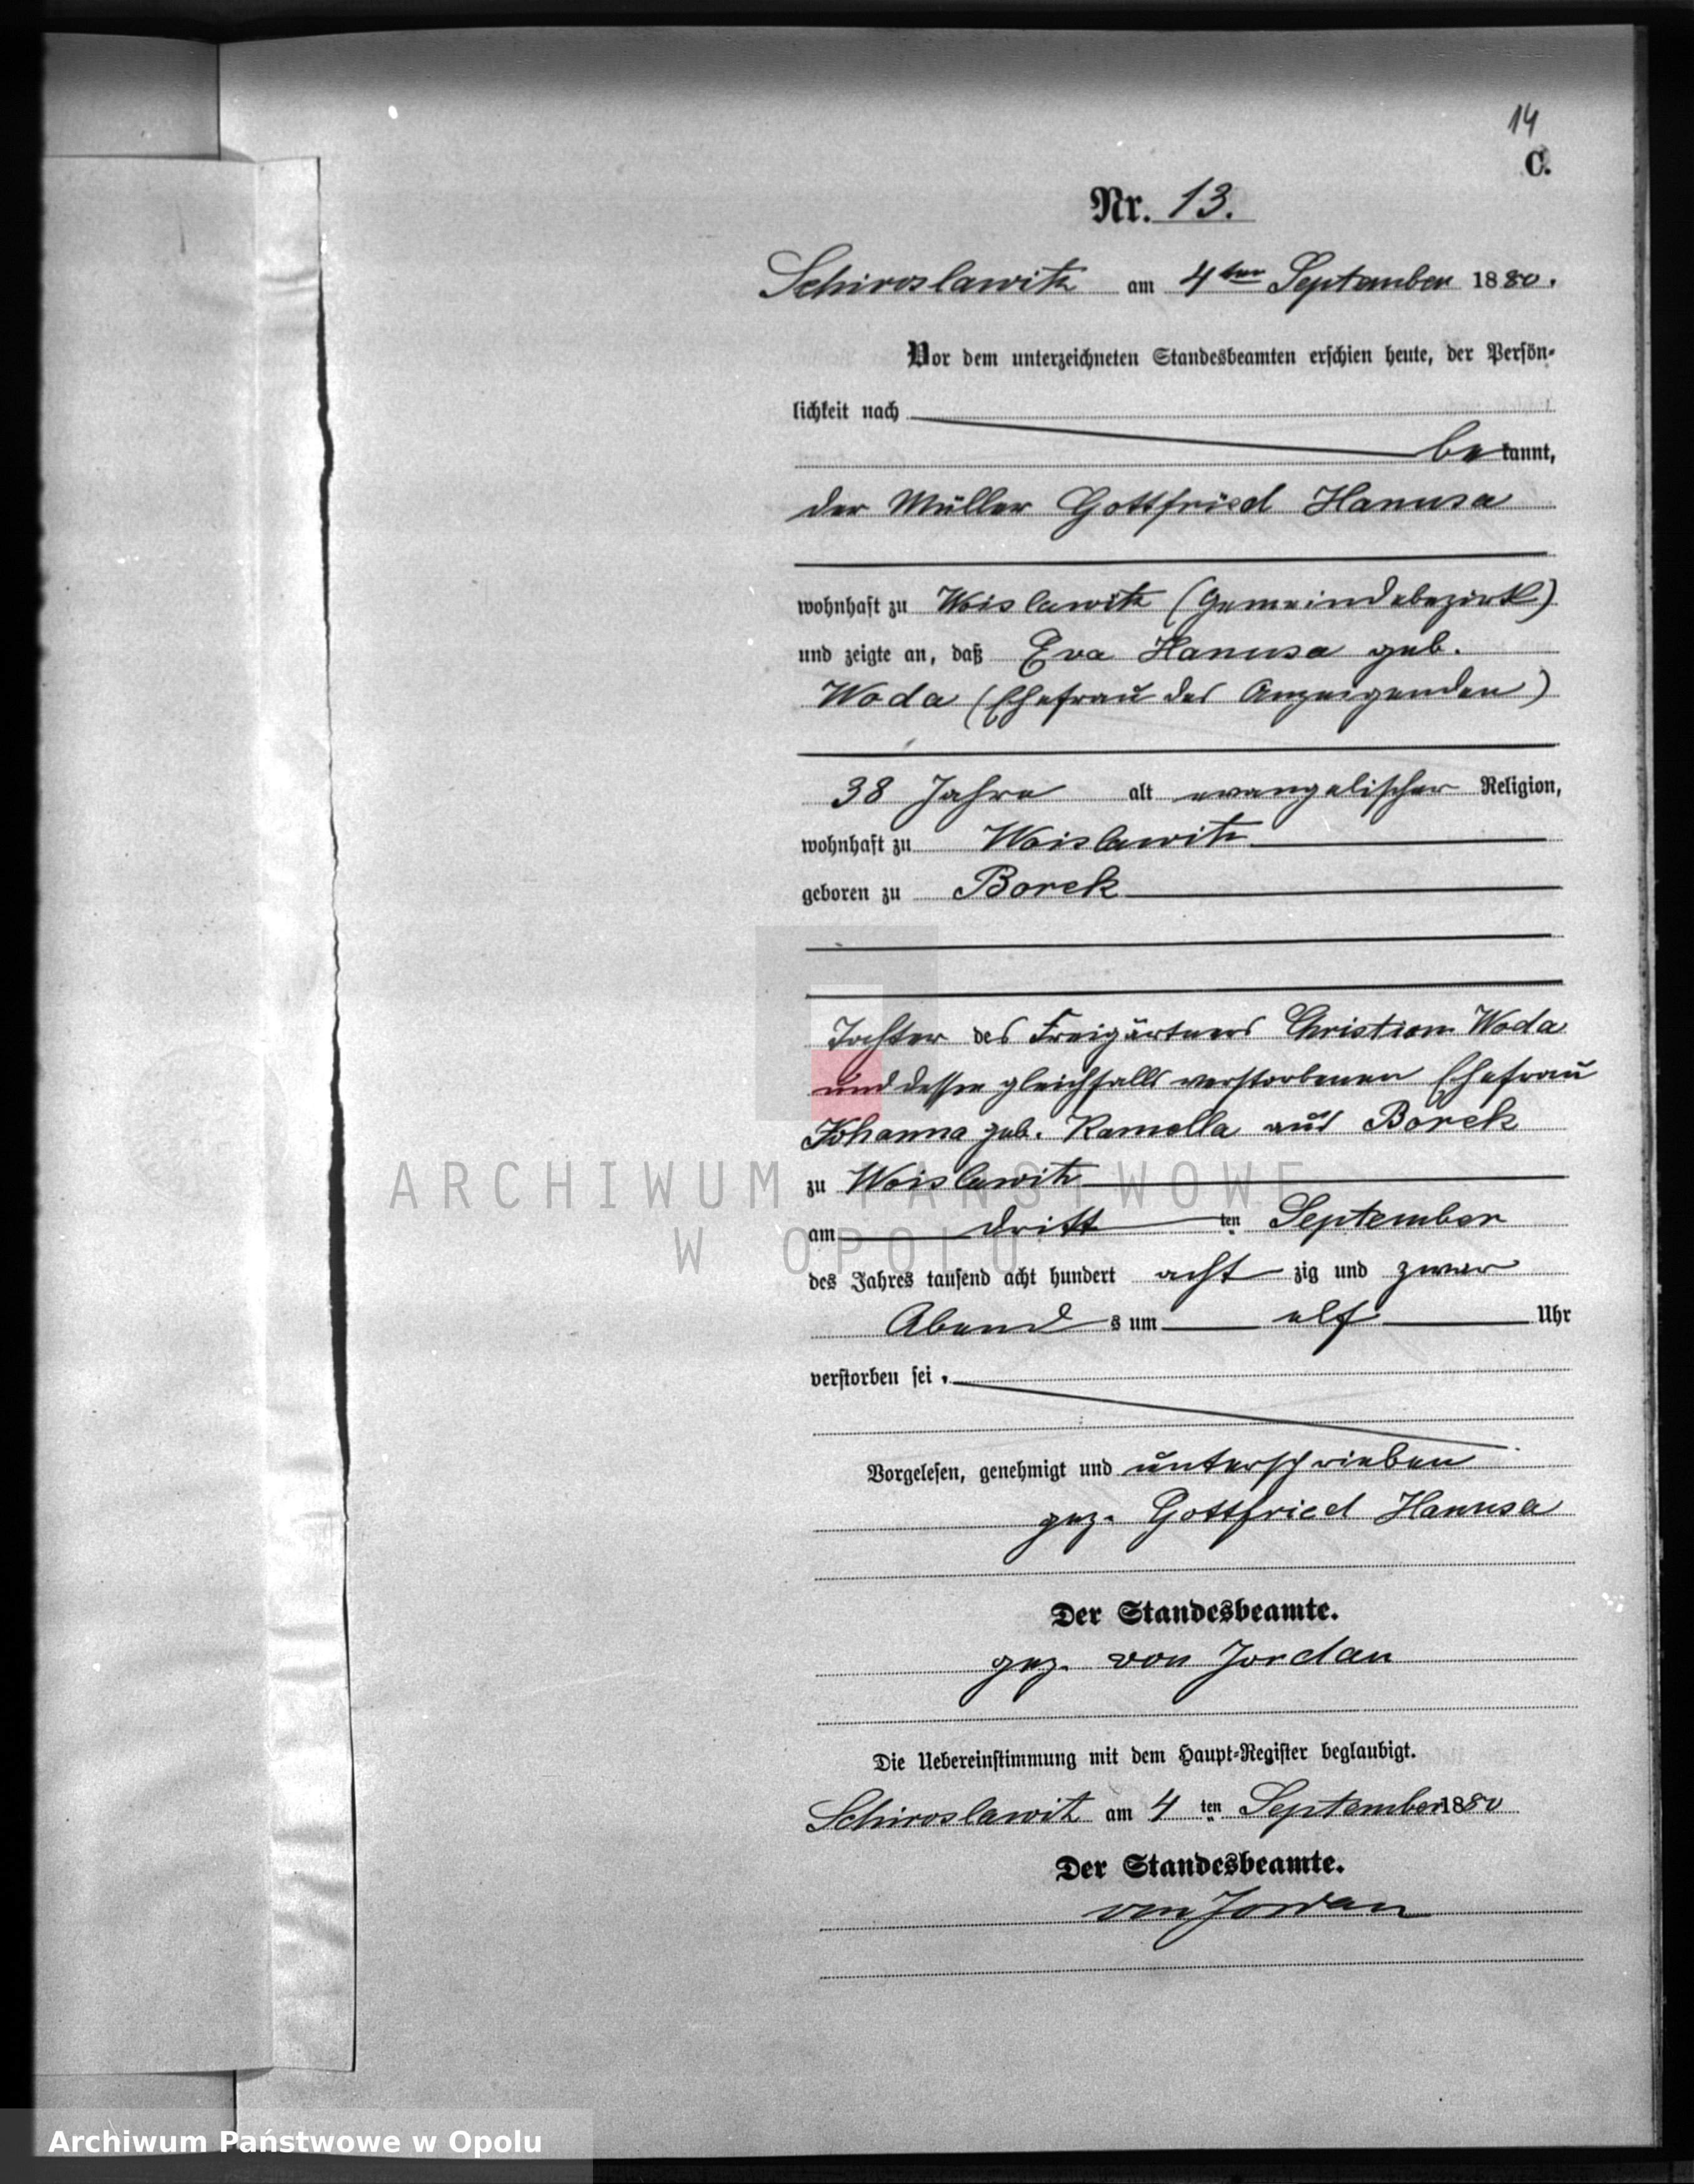 14
C.
Nr. 13.
Schiroslawitz am 4ten September 1880.
Vor dem unterzeichneten Standesbeamten erschien heute, der Persön-
lichkeit nach
bekannt,
der Müller Gottfried Hanusa
wohnhaft zu Woislawitz (Gemeindebezirk)
und zeigte an, daß Eva Hanusa geb.
Woda (Ehefrau des Anzeigenden)
38 Jahre alt evangelischer Religion,
wohnhaft zu Woislawitz
geboren zu Borek
Tochter des Freigärtners Christian Woda
und dessen gleichfalls verstorbenen Ehefrau
Johanna geb. Kamolla aus Borek
zu Woislawitz
am dritt ten September
des Jahres tausend acht hundert acht zig und zwar
Abend s um elf Uhr
verstorben sei.
Vorgelesen, genehmigt und unterschrieben
gez. Gottfried Hanusa
Der Standesbeamte.
gez. von Jordan
Die Uebereinstimmung mit dem Haupt-Register beglaubigt.
Schiroslawitz am 4 ten September 1880
Der Standesbeamte.
von Jordan
ARCHIWUM PAŃSTWOWE
W OPOLU
Archiwum Państwowe w Opolu